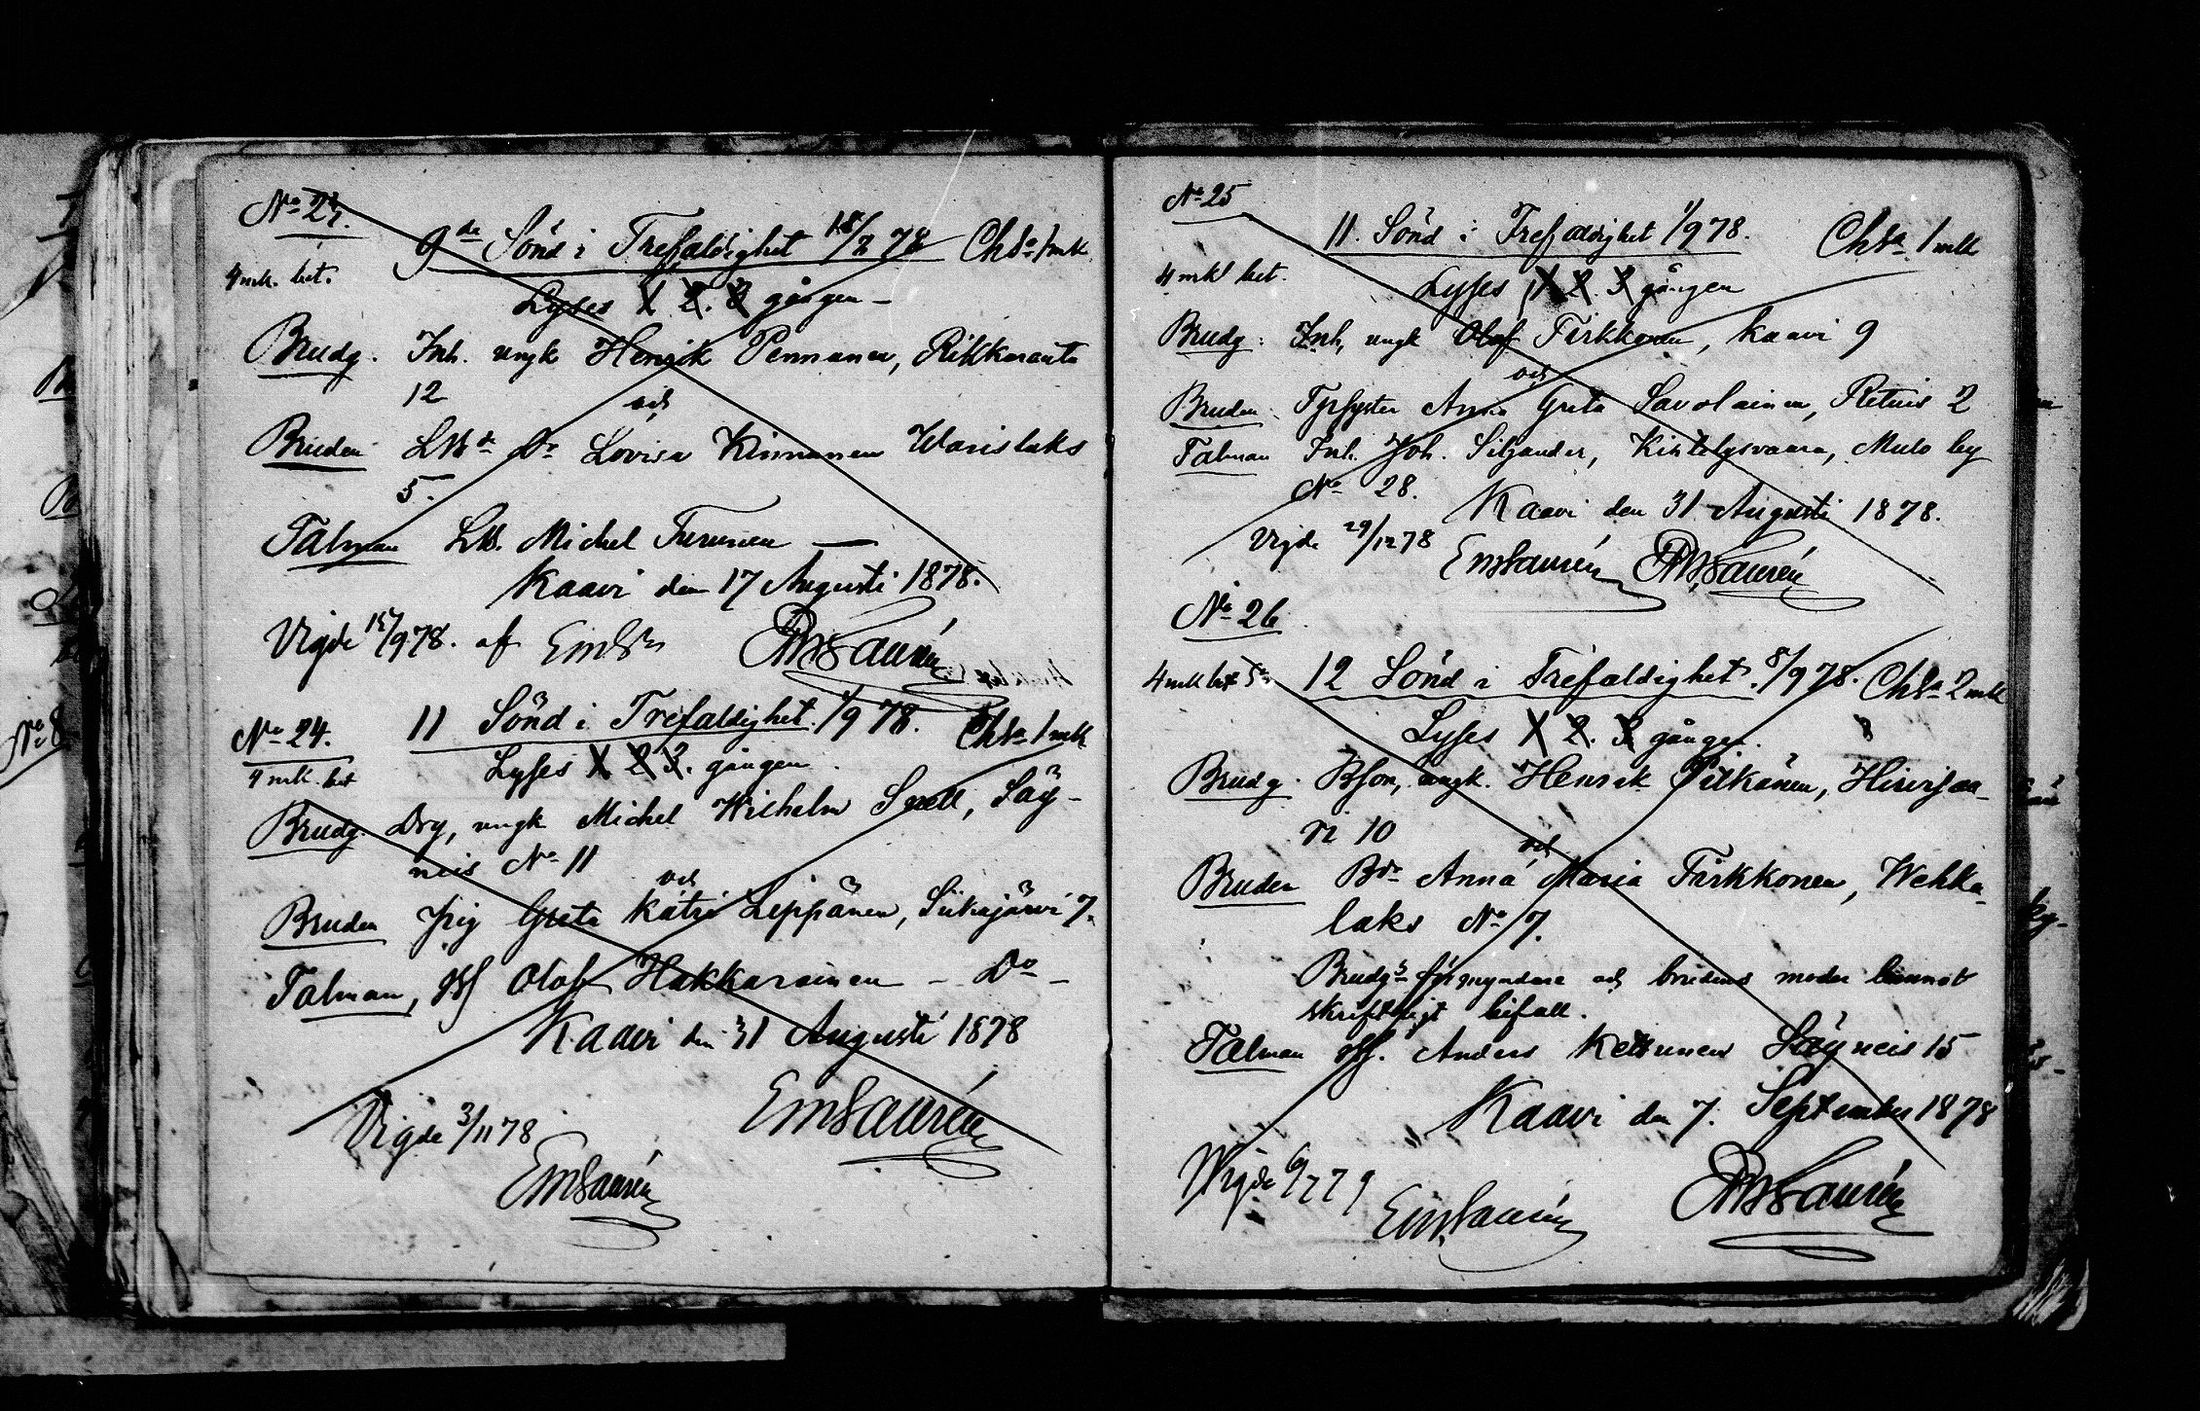 No 23.
9de Sönd i Trefaldighet 18/8 78 Chsa 1 mk
4 mk. bet.
Lyses 1 2. 3 gången –
Brudg. Inh. ungk Henrik Pennanen, Rikkaranta
12
och
Bruden LBd Do Lovisa Kinnunen Warislaks
5.
Talman LB. Michel Turunen —
Kaavi den 17 Augusti 1878.
Vigde 15/9 78. af EmSn
No 24.
11 Sönd i Trefaldighet. 1/9 78. Chsa 1 mk
4 mk. bet
Lyses 1 2 3. gången
Brudg. Drg, ungk Michel Wilhelm Snell, Säy-
neis No 11
och
Bruden pig Greta Katri Leppänen, Siikajärvi 7.
Talman, Olof Hakkarainen – Do –
Kaavi den 31 Augusti 1878
EmSaurén
Vigde 3/11 78
EmSaurén
No 25
11. Sönd i Trefaldighet 1/9 78. Chsa 1 mk
4 mk bet.
Lyses 1 2. 3 gången
Brudg: Inh, ungk Olof Tirkkonen, Kaavi 9
och
Bruden Anna Greta Savolainen, Retuis 2
Talman Inh. Joh. Siljander, Mulo by
No 28.
Kaavi den 31 Augusti 1878.
Vigde 29/12 78 EmSaurén
No 26.
4 mk bet
12 Sönd i Trefaldighet. 8/9 78. Chsa 2 mk
Lyses 1 2. 3 gången.
Brudg. Bson, ungk. Henrik Pitkänen, Hirvisaa-
ri 10
och
Bruden Bdr Anna Maria Tärkkönen, Wehka-
laks No 7.
Brudgs förmyndare och brudens moder lemnat
skriftligt bifall.
Talman Anders Kettunen Säyneis 15
Kaavi den 7. September 1878
Wigde EmSaurén